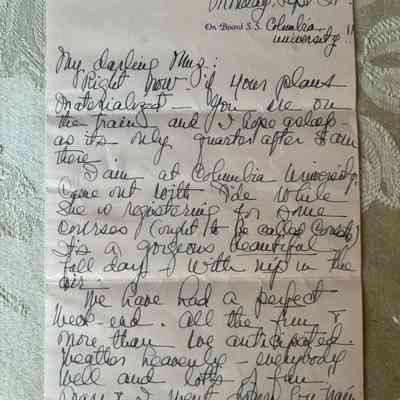 Monday, Sept
On Board S.S. Columbia
University!!
My darling
Right now if your plans
materialized — you are on
the train and I hope asleep
as it's only quarter after 8 am
there
I am at Columbia University.
Came out with Ide while
she is registering for some
courses (ought to be called
It's a gorgeous beautiful
fall day with nip in the
air.
We have had a perfect
week-end. All the fun &
more than we anticipated.
Weather heavenly — everybody
well and lots of fun.
& I went down